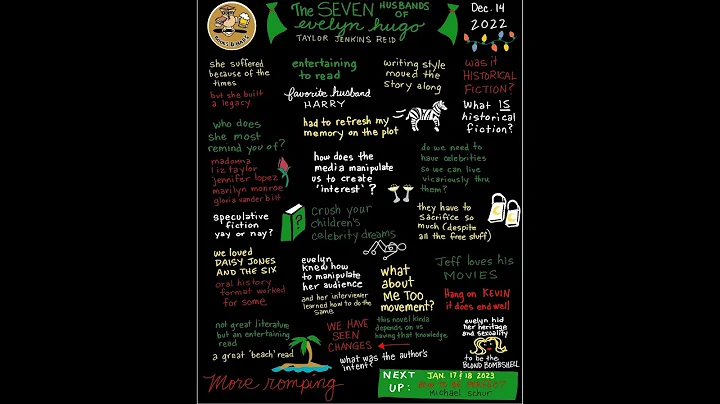 The SEVEN HUSBANDS OF
evelyn hugo
TAYLOR JENKINS REID
Dec. 14
2022
BOOKS & BREWS
she suffered
because of the
times
but she built
a legacy
entertaining
to read
favorite husband
HARRY
writing style
moved the
story along
was it
HISTORICAL
FICTION?
What IS
historical
fiction?
had to refresh my
memory on the plot
who does
she most
remind you of?
madonna
liz taylor
jennifer lopez
marilyn monroe
gloria vander bilt
how does the
media manipulate
us to create
'interest'?
do we need to
have celebrities
so we can live
vicariously thru
them?
speculative
fiction
yay or nay?
?
crush your
children's
celebrity dreams
they have to
sacrifice so
much (despite
all the free stuff)
we loved
DAISY JONES
AND THE SIX
oral history
format worked
for some
evelyn
knew how
to manipulate
her audience
and her interviewer
learned how to do the
same
what
about
ME TOO
movement?
this novel kinda
depends on us
having that knowledge
Jeff loves his
MOVIES
Hang on KEVIN
it does end well
not great literature
but an entertaining
read
a great 'beach' read
WE HAVE
SEEN
CHANGES
what was the author's
intent?
evelyn hid
her heritage
and sexuality
to be the
BLOND BOMBSHELL
More romping
NEXT
UP:
JAN. 17 & 18 2023
HOW TO BE PERFECT
Michael Schur